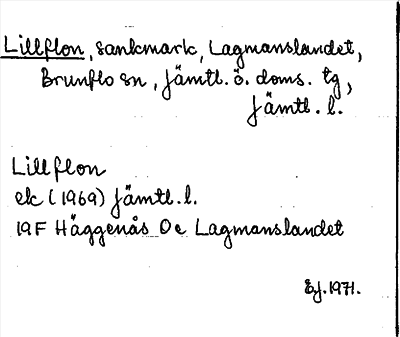 Lillflon, sankmark, Lagmanslandet,
Brunflo sn, Jämtl. ö. doms. tg,
Jämtl. l.
Lillflon
ek (1969) Jämtl. l.
19F Häggenås Oc Lagmanslandet
EJ. 1971.